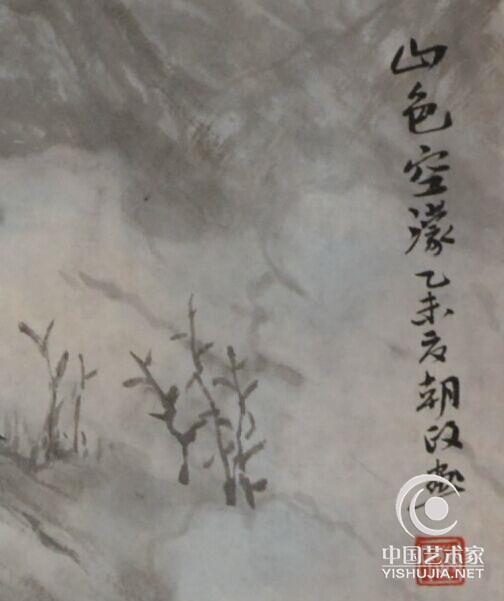 山色空濛乙未夏朝政画
中国艺术家
YISHUJIA.NET